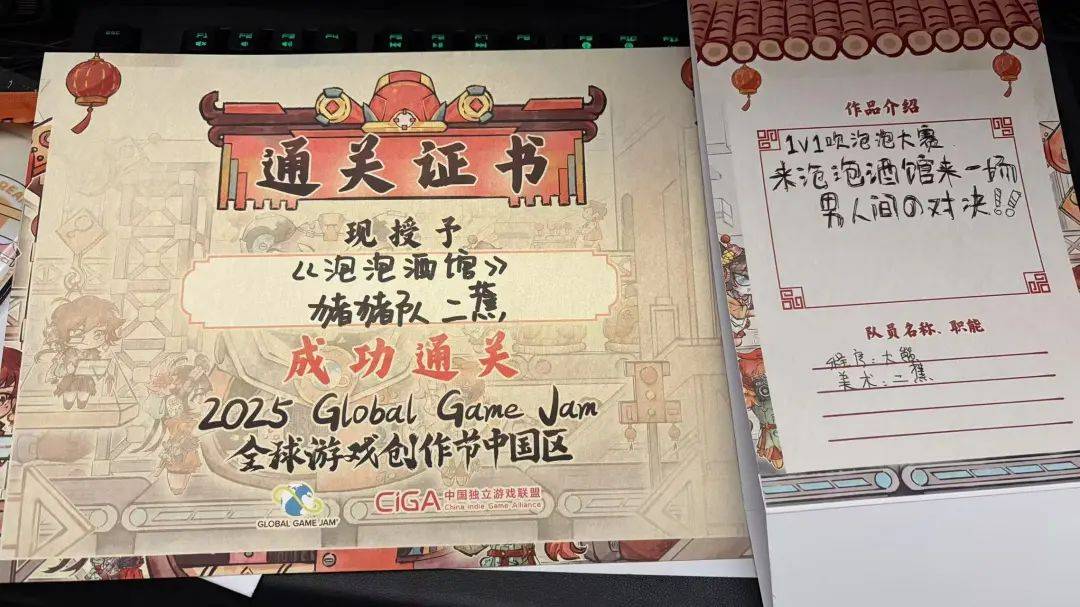 通关证书
现授予
《泡泡酒馆》
猪猪队 二蕉
成功通关
2025 Global Game Jam
全球游戏创作节中国区
GLOBAL GAME JAM
CiGA 中国独立游戏联盟
China Indie Game Alliance
作品介绍
1V1吹泡泡大赛
来泡泡酒馆来一场
男人间の对决!!
队员名称、职能
程序：大熊
美术：二蕉